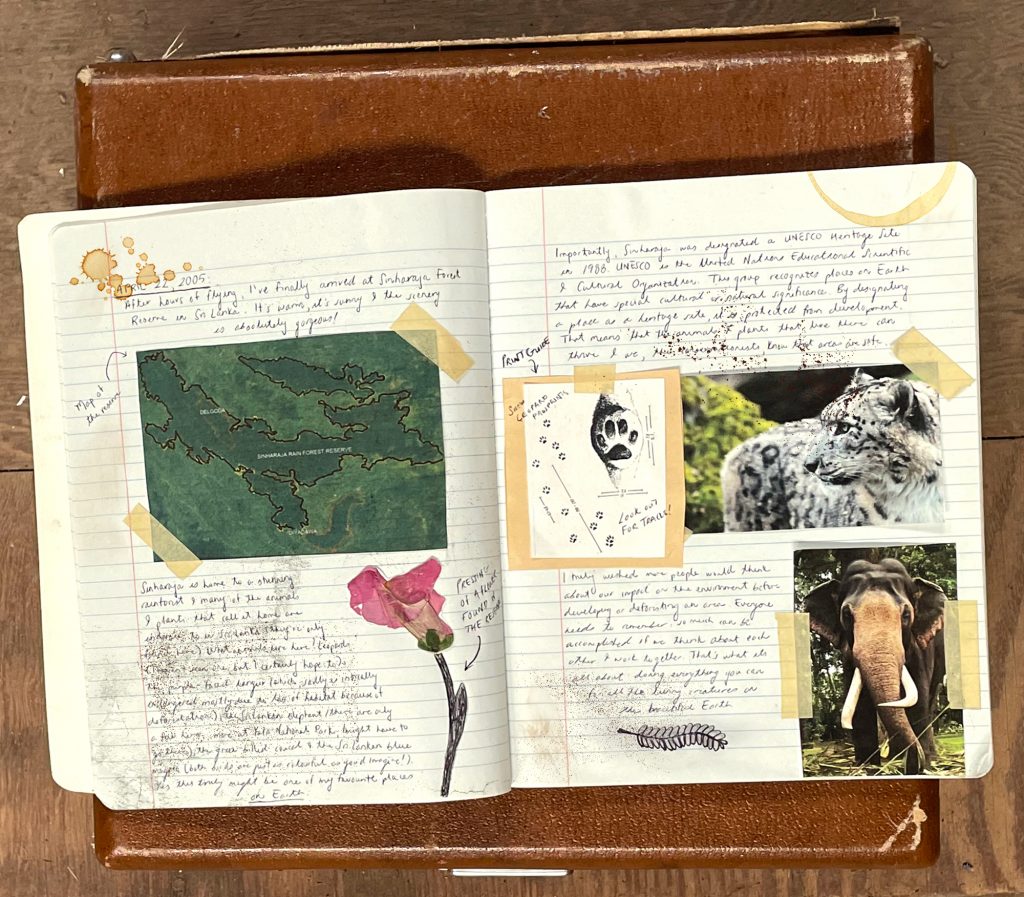 APRIL 22, 2005-
After hours of flying, I've finally arrived at Sinharaja Forest
Reserve in Sri Lanka. It's warm, it's sunny & the scenery
is absolutely gorgeous!
Map of
the reserve
DELGODA
SINHARAJA RAIN FOREST RESERVE
DIYADAWA
Sinharaja is home to a stunning
rainforest & many of the animals
& plants that call it home are
endemic to Sri Lanka (they're only
found here). What animals live here? Leopards
seen one, but I certainly hope to),
the purple-faced langur (which sadly is critically
endangered mostly due to loss of habitat because of
deforestation), the Sri Lankan elephant (there are only
a few here, more at Yala National Park. Might have to
go there), the green billed coucal & the Sri Lankan blue
magpie (both birds are just as colourful as you'd imagine!).
Yes this truly might be one of my favourite places
on Earth.
PRESSING
OF A FLOWER
FOUND IN
THE RESERVE
Importantly, Sinharaja was designated a UNESCO Heritage Site
in 1988. UNESCO is the United Nations Educational Scientific
& Cultural Organization. This group recognizes places on Earth
that have special cultural or natural significance. By designating
a place as a heritage site, it is protected from development.
That means that the animals & plants that live there can
thrive & we, the conservationists know that areas are safe.
PRINT GUIDE
LEOPARD
PAWPRINTS
LOOK OUT
FOR TRACKS!
I truly wished more people would think
about our impact on the environment before
developing or deforesting an area. Everyone
needs to remember so much can be
accomplished if we think about each
other & work together. That's what it's
all about, doing everything you can
for all the living creatures on
this beautiful Earth